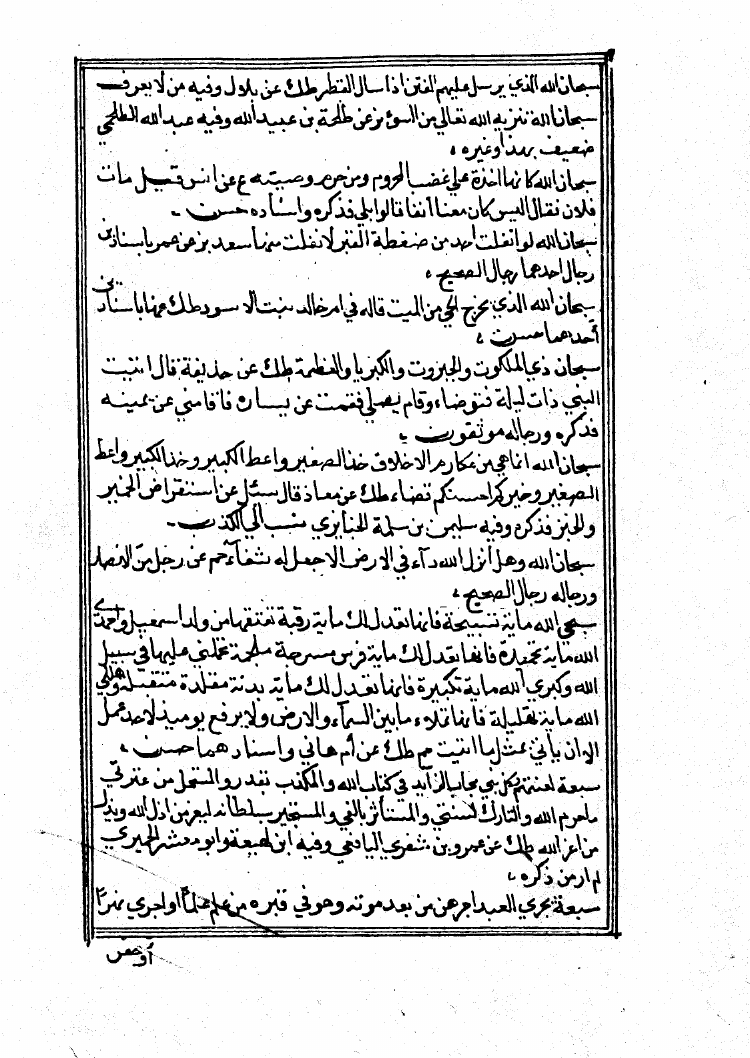 سبحان الله الذي يرسل عليهم الفتن اذا سال القطر طك عن بلال وفيه من لا يعرف
سبحان الله تنزيه الله تعالي من السوء بز عن طلحة بن عبيد الله وفيه عبد الله الطلحي
ضعيف بهذا وغيره ،
سبحان الله كانها اخذة علي غضب المحروم من حرم وصيته ع عن انس قيل مات
فلان فقال اليس كان معنا آنفا قالوا بلي فذكره واسناده حسن .
سبحان الله لو انفلت احد من ضغطة القبر لانفلت منها سعد بز عن عمر باسنادين
رجال احدهما رجال الصحيح ،
سبحان الله الذي يخرج الحي من الميت قاله في ام خالد بنت الاسود طك عنها باسنادين
أحدهما حسن ،
سبحان ذي الملكوت والجبروت والكبريا والعظمة طك عن حذيفة قال اتيت
النبي ذات ليلة فتوضاء وقام يصلي فقمت عن يساره فاقامني عن يمينه
فذكره ورجاله موثقون .
سبحان الله انما هي من مكارم الاخلاق خذ الصغير واعط الكبير وخذ الكبير واعط
الصغير وخيركم احسنكم قضاء طك عن معاذ قال سئل عن استقراض الخمير
والخبز فذكره وفيه سليمن بن سلمة الخبايري نسب الي الكذب .
سبحان الله وهل أنزل الله دآء في الارض الا جعل له شفآء حم عن رجل من الانصار
ورجاله رجال الصحيح ،
سبحي الله ماية تسبيحة فانها تعدل لك ماية رقبة تعتقها من ولد اسمعيل واحمدي
الله ماية تحميدة فانها تعدل لك ماية فرس مسرجة ملجمة تحملين عليها في سبيل
الله وكبري الله ماية تكبيرة فانها تعدل لك ماية بدنة مقلدة متقبلة وهللي
الله ماية تهليلة فانها تملاء ما بين السمآء والارض ولا يرفع يوميذ لاحد عمل
الا ان ياتي بمثل ما اتيت حم طك عن أم هاني واسنادهما حسن ،
سبعة لعنتهم وكل نبي مجاب الزآيد في كتاب الله والمكذب بقدر والمستحل من عترتي
ما حرم الله والتارك لسنتي والمستأثر بالفي والمتجبر بسلطانه ليعز من اذل الله ويذل
من اعز الله طك عن عمرو بن شغوي اليافعي وفيه ابن لهيعة وابو معشر الحميري
لم ار من ذكره ،
سبعة يجري للعبد اجرهن من بعد موته وهو في قبره من علم علمًا او اجري نهرًا
أو حفر